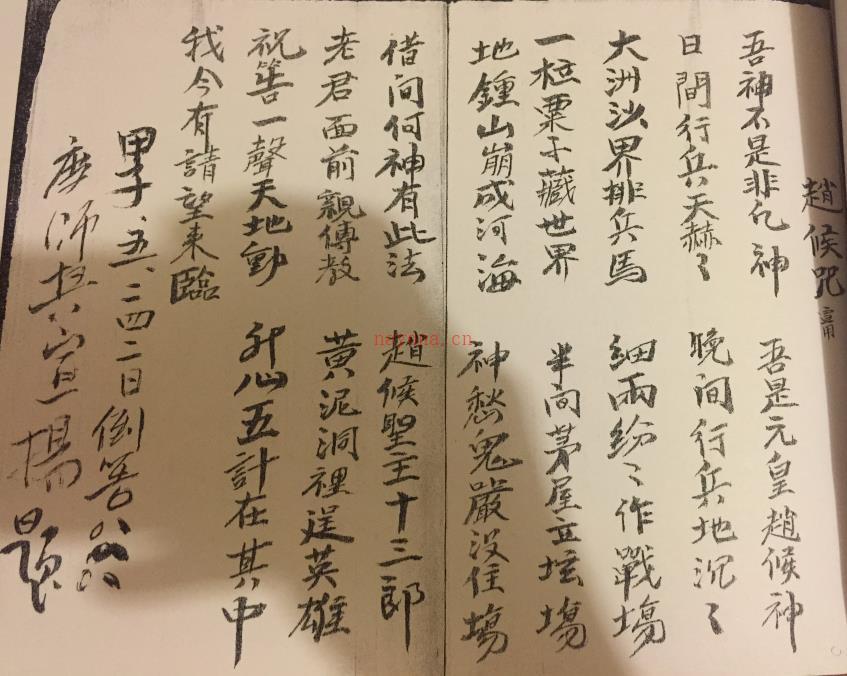 趙候咒
吾神不是非凡神 吾是元皇趙候神
日間行兵天赫〻 晚間行兵地沉〻
大洲沙界排兵馬 細雨紛〻作戰場
一粒粟子藏世界 半间茅屋立坛場
地鍾山崩成河海 神愁鬼嚴没住場
借问何神有此法 趙候聖主十三郎
老君面前親傳教 黄泥洞裡逞英雄
祝筶一聲天地動 五計在其中
我今有請望来臨
甲子、五、二四二日倒筶
度師 宣揚 題
nayona.cn